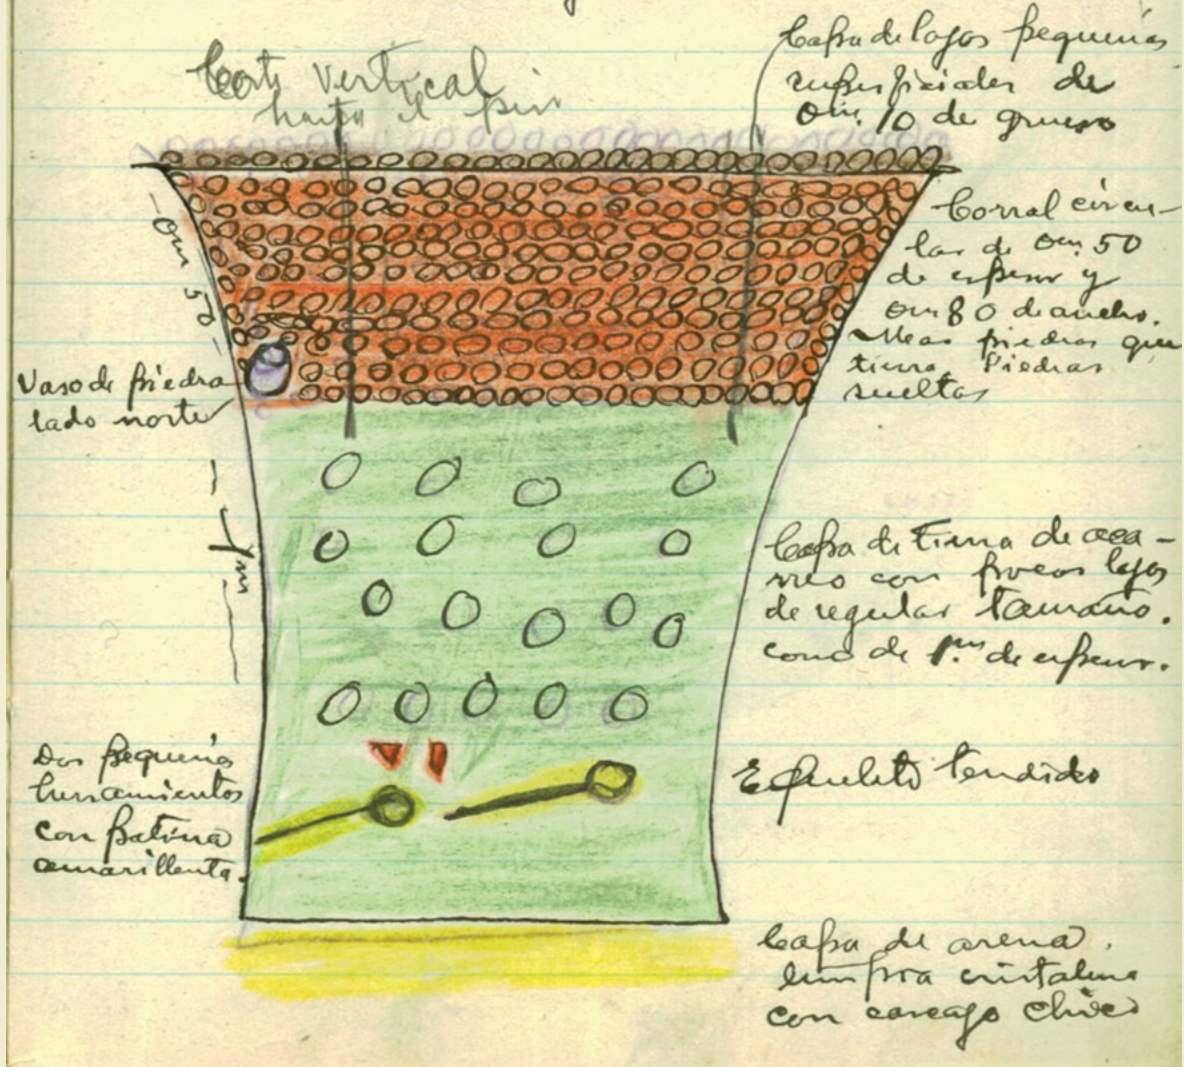 Corte vertical
hasta el piso
Capa de lajas pequeñas
superficiales de
0m. 10 de grueso
Corral circu-
lar de 0m. 50
de espesor y
0m 80 de ancho.
Mas piedras que
tierra. Piedras
sueltas
0m 50
Vaso de piedra
lado norte
1m
Capa de tierra de aca-
rreo con pocas lajas
de regular tamaño.
como de 1m de espesor.
Esqueleto tendido
Dos pequeños
con patina
amarillenta.
Capa de arena
limpia cristalina
con cascajo chico